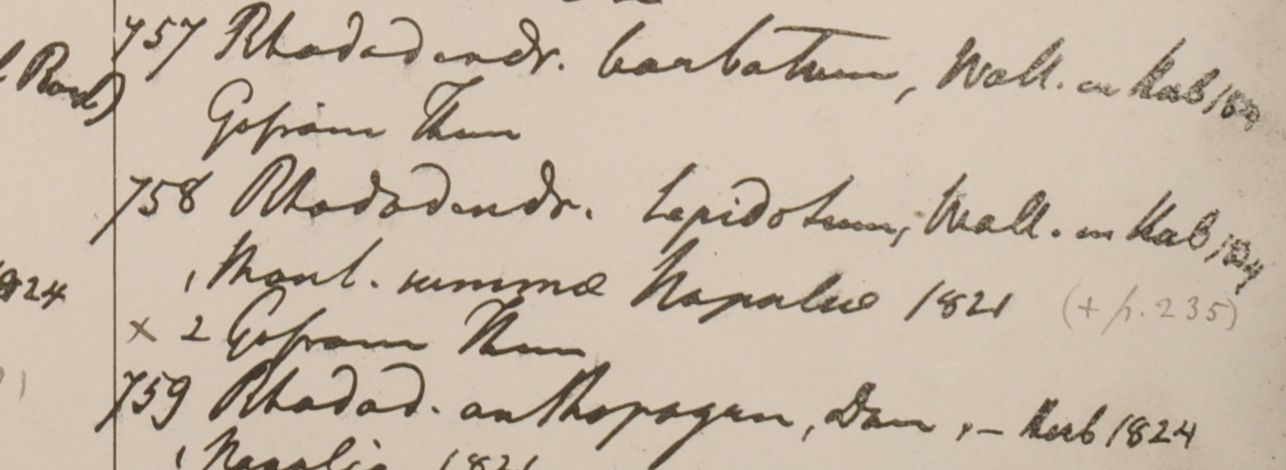 757 Rhododendr. barbatum, Wall. in Herb 1824
Gosain Than
758 Rhododendr. lepidotum, Wall. in Herb 1824
1 Mont. summæ Napaliæ 1821 (+ p. 235)
x 2 Gosain Than
1824
759 Rhodod. anthopogon, Don, - Herb 1824
1 Napalia 1821